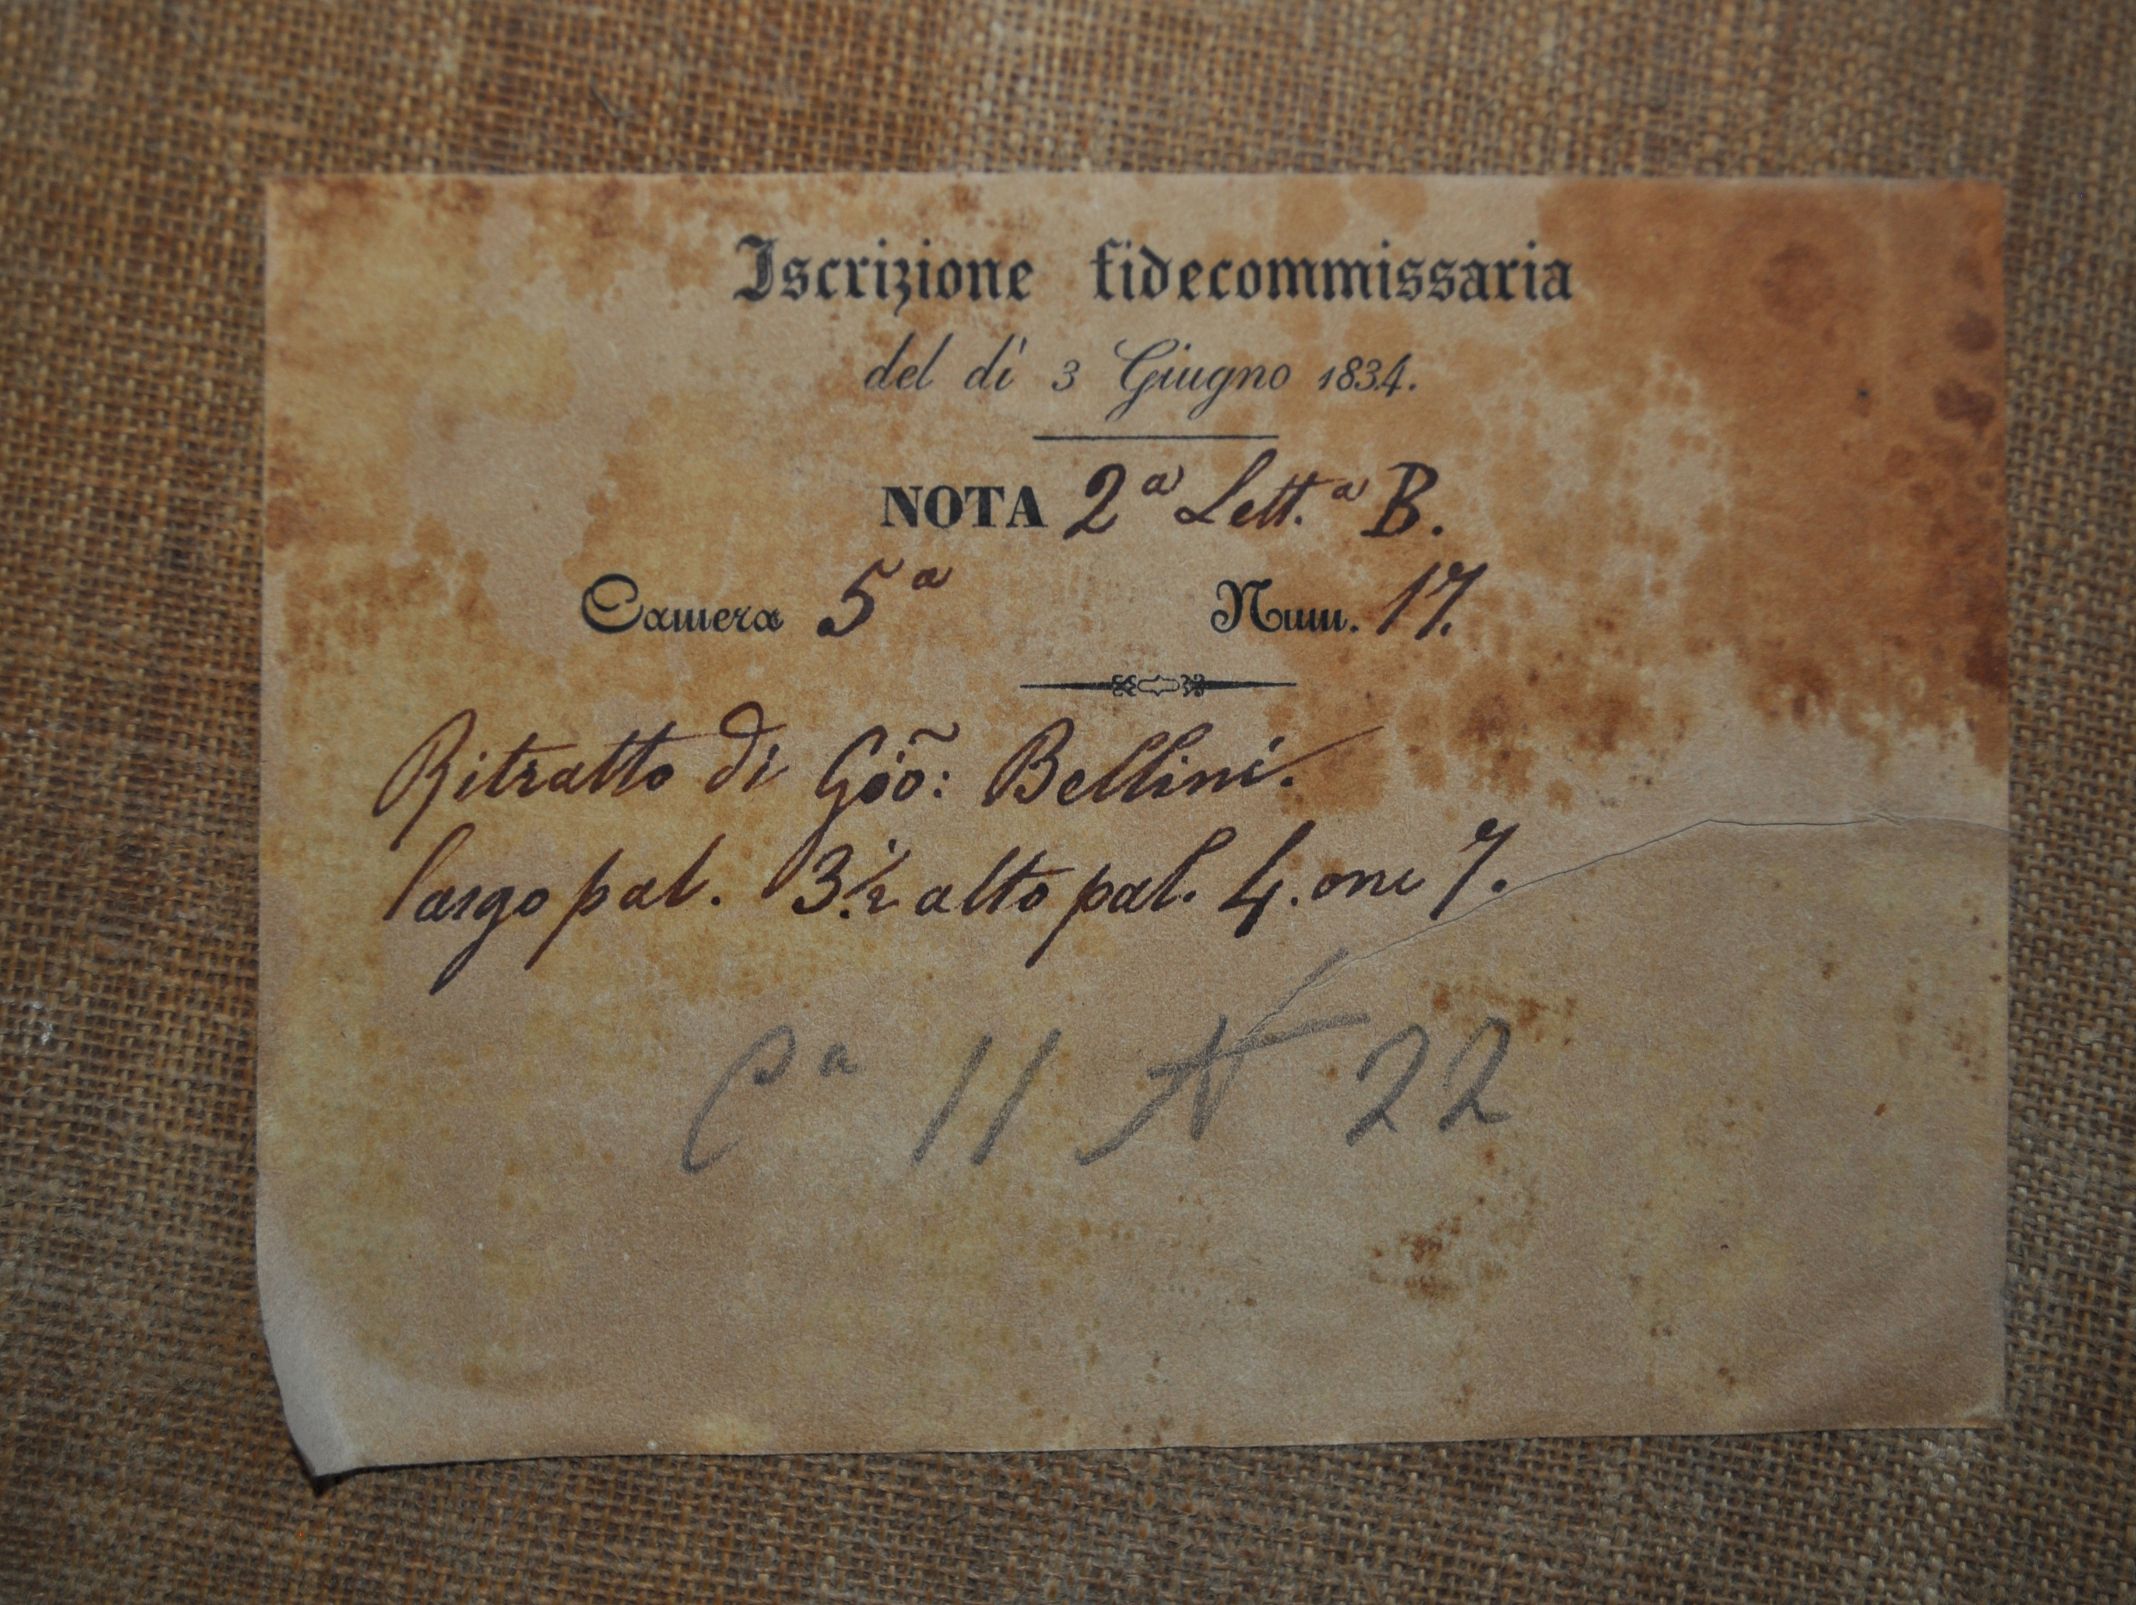 Iscrizione fidecommissaria
del dì 3 Giugno 1834.
NOTA 2ª Lett.ª B.
Camera 5ª Num. 17.
Ritratto di Gio͞: Bellini.
largo pal. 3.½ alto pal. 4. onc 7.
Cª 11 N 22